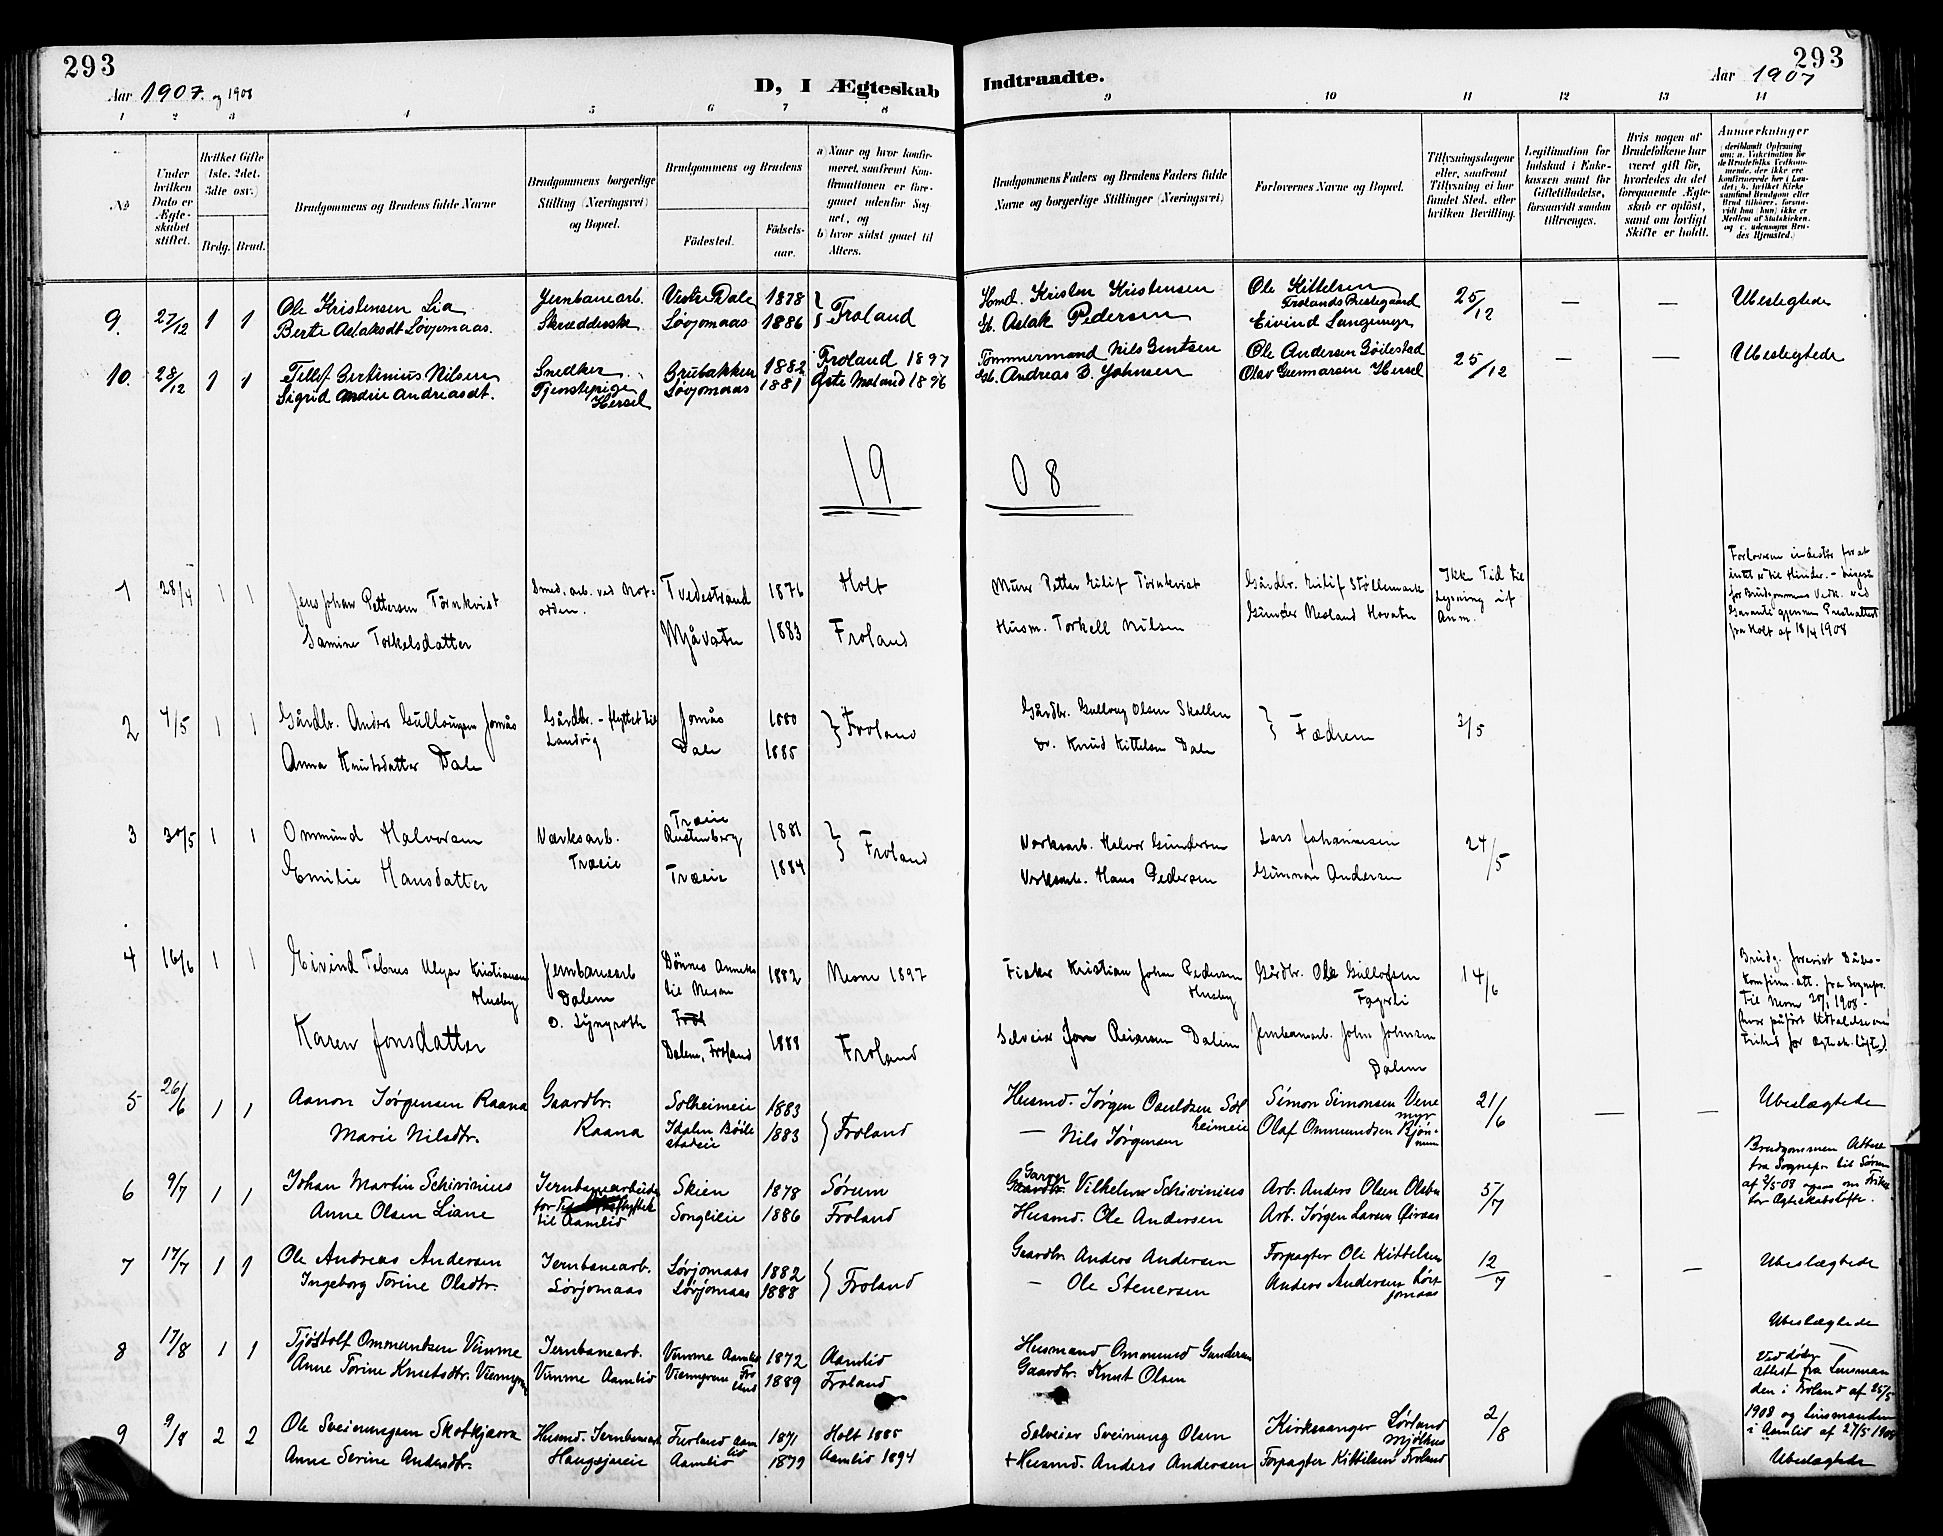 293
Aar 1907. og 1908
D, I Ægteskab Indtraadte.
293
Aar 1907
1 2 3 4 5 6 7 8 9 10 11 12 13 14
No
Under hvilken Dato er Ægteskabet stiftet.
Hvilket Gifte 1ste. 2det. 3die osv.)
Brdg. Brud.
Brudgommens og Brudens fulde Navne
Brudgommens borgerlige Stilling (Næringsvei) og Bopæl.
Brudgommens og Brudens
Födested. Födsels-aar.
a) Naar og hvor konfirmeret, saafremt Konfirmationen er foregaaet udenfor Sognet, og
b) hvor sidst gaaet til Alters.
Brudgommens Faders og Brudens Faders fulde Navne og borgerlige Stillinger (Næringsvei)
Forlovernes Navne og Bopæl.
Tillysningsdagene eller, saafremt Tillysning ei har fundet Sted, efter hvilken Bevilling.
Legitimation for Indskud i Enkekassen samt for Giftetilladelse, forsaavidt saadan tiltrænges.
Hvis nogen af Brudefolkene har været gift før, hvorledes da det foregaaende Ægteskab er opløst, samt om lovligt Skifte er holdt.
Anmerkninger
9. 27/12 1 1 Ole Kristensen Lia Jernbanearb. Vestre Dale 1878 } Froland Hmd. Kristen Kristensen Ole Kittelsen Frolands Prestegaard 25/12 — — Ubeslegtede
Berte Aslaksdt Lövjomaas. Skredderske Lövjomaas 1886 Gb. Aslak Pedersen Eivind Langemyr
10. 28/12 1 1 Tellef Bertinius Nilsen Snedker Brubakken 1882 Froland 1897 Tömmermand Nils Bentsen Ole Andersen Böilestad 25/12 — — Ubeslegtede
Sigrid Andrie Andreasdt. Tjenstepige Hersel Lövjomaas 1881 Östre Moland 1896 Gb. Andreas B. Johnsen Olav Gunnarsen Hersel
19 08
1 28/4 1 1 Jens Johan Pettersen Törnkvist Smed. arb. ved Notodden. Tvedestrand 1876 Holt Murer Petter Eilif Törnkvist Gårdbr. Eilif Stöllemark Ikke Tid til Lysning Anm.
Samine Torkelsdatter Mjåvatn 1883 Froland Husm. Torkell Nilsen Gunder Mesland Hovatn
Forloverne indestår for at intet er til Hinder. –
for Brudgommens Vedk. ved
Garanti gjennem Presteattest
fra Holt af 18/4 1908
2 4/5 1 1 Gårdbr. Anders Gullougsen Jomås Gårdbr. – flyttet til Landvig Jomås 1880 } Froland Gårdbr. Gulloug Olsen Skallen } Fædrene 3/5
Anna Knutsdatter Dale Dale 1885 Do. Knud Kittelsen Dale
3 30/5 1 1 Ommund Halvorsen Værksarb. Træeie Træeie Rustenberg 1881 } Froland Værksarb. Halvor Gundersen Lars Johannesen 24/5
Emilie Hansdatter Træeie 1884 Værksarb. Hans Pedersen Gunnar Andersen
4 16/6 1 1 Eivind Kristiansen Husby Jernbanearb Dalen Dönnes Anneks til Nesne 1882 Nesne 1897 Fisker Kristian Johan Pedersen Husby Gårdbr. Ole Gullofsen Fagrli 14/6
Karen Jonsdatter Dalen, Froland 1888 Froland Selveier Jon Reiersen Dalen Jernbanearb. John Johnsen Dalen
Brudg. forevist Dåbs-
Konfirm. att. fra Sognepr.
til Nesne 20/1 1908 –
hvor påfört Udtalelse om
frihed for Ægtesk.löfte.
5 26/6 1 1 Aanon Jörgensen Raana Gaardbr. Solheimeie 1883 } Froland Husmd. Jörgen Osuldsen Solheimeie Simon Simonsen Venemyr 21/6 — — Ubeslægtede
Marie Nilsdtr. Raana Idalen Böilestadeie 1883 — Nils Jörgensen Olaf Ommundsen Bjönnum
6 9/7 1 1 Johan Martin Schivinius Jernbanearbeider til Aamlid Skien 1878 Sörum Garver Vilhelm Schivinius Arb. Anders Olsen Olsbu 5/7
Anne Olsen Liane Songelieie 1886 Froland Husmd. Ole Andersen Arb. Jörgen Larsen Öiraas
Brudgommen Attest
fra Sognepr. til Sörum
af 2/5 08 ogsaa om Frihed
for Ægteskabslöfte.
7 17/7 1 1 Ole Andreas Andersen Jernbanearb. Lövjomaas 1882 } Froland Gaardbr Anders Andersen Forpagter Ole Kittelsen 12/7 - — Ubeslægtede
Ingeborg Torine Olsdtr. Lövjomaas Lövjomaas 1888 — Ole Stenersen Anders Andersen Lövjomaas
8 17/8 1 1 Tjöstolf Ommundsen Vimme Jernbanearb. Vimme Aamlid 1872 Aamlid Husmand Ommund Gundersen Ubeslægtede
Anne Torine Knutsdtr. Viemyren Vimme Aamlid Viemyrene Froland 1889 Froland Gaardbr. Knut Olsen
Ved döbe-
attest fra Lensman
den i Froland af 25/5
1908 og Lensmanden
i Aamlid af 27/5 1908
9 9/8 2 2 Ole Sveinungsen Skotkjærr Husmd. Jernbanearb Froland Aamlid 1871 Holt 1885 Selveier Sveinung Olsen Kirkesanger Lörland Mjölhus 2/8
Anne Serine Andersdtr. Haugsjaeie Aamlid 1879 Aamlid 1894 + Husmd. Anders Andersen Forpagter Kittelsen Froland Ubeslægtede